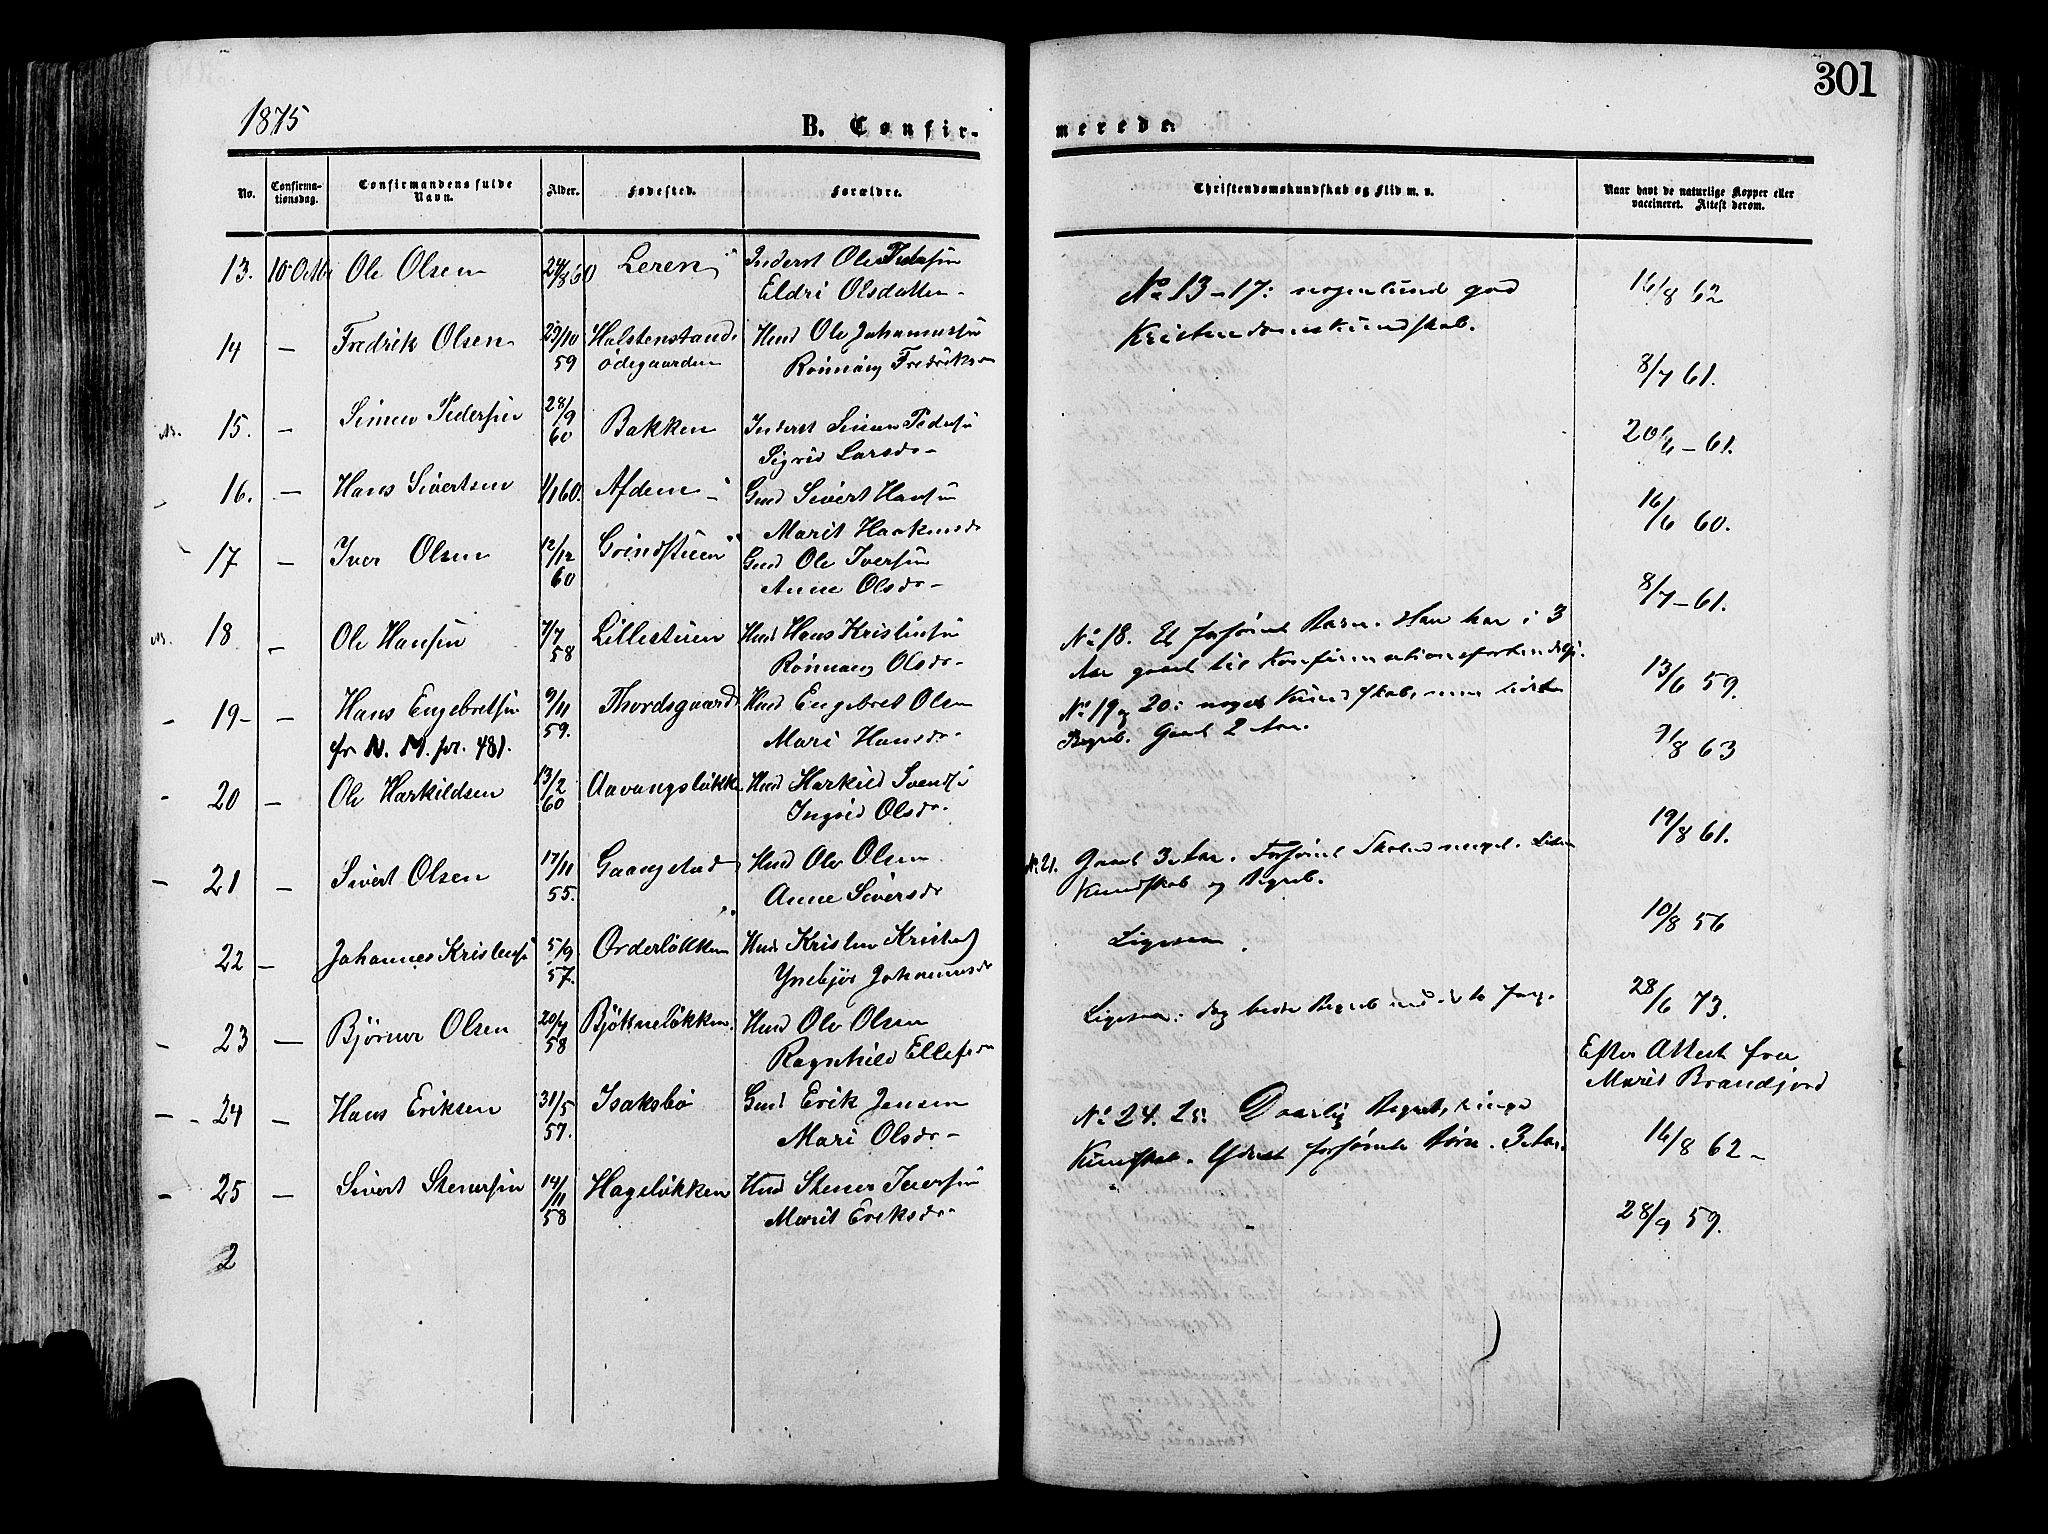 301
1875
B. Confir-
merede.
No.
Confirma-
tionsdag.
Confirmandens fulde
Navn.
Alder.
Fødested.
Forældre.
Christendomskundskab og Flid m. v.
Naar havt de naturlige Kopper eller
vaccineret. Attest derom.
13. 10 Octbr Ole Olsen 24/8 60 Leren Inderst Ole Pedersen
Eldri Olsdatter
No 13-17: nogenlunde god
Kristendomskundskab.
16/8 62
14 — Fredrik Olsen 29/10 59 Halstenstand
ødegaarden
Hmd Ole Johannesen
Rønnaug Fredriksd
8/7 61.
15. — Simen Pedersen 28/9 60 Bakken Inderst Simen Peders
Sigrid Larsd
20/6 — 61.
16. — Hans Sivertsen 1/1 60. Afdem Gmd Sivert Hansen
Marit Haakensd
16/6 60.
17 — Iver Olsen 12/12 60 Grindstuen Gmd Ole Iversen
Anne Olsd
8/7 — 61.
18 — Ole Hansen 7/7 58 Lillestuen Hmd Hans Kristensen
Rønnaug Olsd
No 18. Et forsømt Barn. Han har i 3
Aar gaaet til Konfirmationsforberedelse.
13/6 59.
19 — Hans Engebretsen 9/11 59. Thordsgaard Hmd Engebret Olsen
fr N. M. for. 481.
Mari Hansd
No 19 og 20: noget Kundskab, men lidet
Begreb. Gaaet 2 Aar.
9/8 63
20 — Ole Harkildsen 13/2 60 Aavangsløkken Hmd Harkild Svends
Ingrid Olsd
19/8 61.
21 — Sivert Olsen 17/11 55. Gaangstad Hmd Ole Olsen
Anne Siversd
No 21. Gaaet 3 Aar. Forsømt Skolen meget. Liden
Kundskab og Begreb.
10/8 56
22 — Johannes Kristens 5/9 57. Orderløkken Hmd Kristen Kristens
Ynebjør Johannesd
Ligesaa.
28/6 73.
23 — Bjørner Olsen 20/4 58 Bjøkneløkken Hmd Ole Olsen
Ragnhild Ellefsd
Ligesaa. dog bedre Begreb
Efter Attest fra
Marit Brandjord
24 — Hans Eriksen 31/5 57. Isaksbø Gmd Erik Jensen
Mari Olsd
No 24. 25: Daarlig Begreb, ringe
Kundskab. Yderst forsømte Børn. 3 Aar.
16/8 62 —
25 — Sivert Stenersen 14/11 58 Hageløkken Hmd Stener Iversen
Marit Eriksd
28/9 59.
2